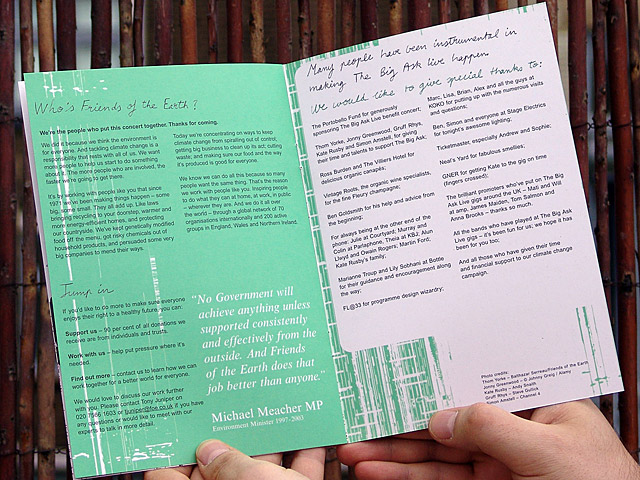 Who's Friends of the Earth?
We're the people who put this concert together. Thanks for coming.
We did it because we think the environment is
for everyone. And tackling climate change is a
responsibility that rests with all of us. We want
more people to help us start to do something
about it. The more people who are involved, the
faster we're going to get there.
It's by working with people like you since
1971 we've been making things happen – some
big, some small. They all add up. Like laws
bringing recycling to your doorstep, warmer and
more energy-efficient homes, and protecting
our countryside. We've kept genetically modified
food off the menu, got risky chemicals out of
household products, and persuaded some very
big companies to mend their ways.
Today we're concentrating on ways to keep
climate change from spiralling out of control,
getting big business to clean up its act; cutting
waste; and making sure our food and the way
it's produced is good for everyone.
We know we can do all this because so many
people want the same thing. That's the reason
we work with people like you. Inspiring people
to do what they can at home, at work, in public
– wherever they are. And we do it all over
the world – through a global network of 70
organisations internationally and 200 active
groups in England, Wales and Northern Ireland.
Jump in
If you'd like to do more to make sure everyone
enjoys their right to a healthy future, you can.
Support us – 90 per cent of all donations we
receive are from individuals and trusts.
Work with us – help put pressure where it's
needed.
Find out more – contact us to learn how we can
work together for a better world for everyone.
We would love to discuss our work further
with you. Please contact Tony Juniper on
020 7566 1603 or tjuniper@foe.co.uk if you have
any questions or would like to meet with our
experts to talk in more detail.
"No Government will
achieve anything unless
supported consistently
and effectively from the
outside. And Friends
of the Earth does that
job better than anyone."
Michael Meacher MP
Environment Minister 1997-2003
Many people have been instrumental in
making The Big Ask live happen
We would like to give special thanks to:
The Portobello Fund for generously
sponsoring The Big Ask Live benefit concert;
Thom Yorke, Jonny Greenwood, Gruff Rhys,
Kate Rusby and Simon Amstell, for giving
their time and talents to support The Big Ask;
Ross Burden and The Villiers Hotel for
delicious organic canapés;
Vintage Roots, the organic wine specialists,
for the fine Fleury champagne;
Ben Goldsmith for his help and advice from
the beginning;
For always being at the other end of the
phone: Julie at Courtyard; Murray and
Colin at Parlaphone, Theia at KBJ; Alun
Llwyd and Owain Rogers; Marlin Ford;
Kate Rusby's family;
Marianne Troup and Lily Sobhani at Bottle
for their guidance and encouragement along
the way;
FL@33 for programme design wizardry;
Marc, Lisa, Brian, Alex and all the guys at
KOKO for putting up with the numerous visits
and questions;
Ben, Simon and everyone at Stage Electrics
for tonight's awesome lighting;
Ticketmaster, especially Andrew and Sophie;
Neal's Yard for fabulous smellies;
GNER for getting Kate to the gig on time
(fingers crossed);
The brilliant promoters who've put on The Big
Ask Live gigs around the UK – Mati and Will
at amp, James Maiden, Tom Salmon and
Anna Brooks – thanks so much.
All the bands who have played at The Big Ask
Live gigs – it's been fun for us; we hope it has
been for you too;
And all those who have given their time
and financial support to our climate change
campaign.
Photo credits:
Thom Yorke – Balthazar Serreau/friends of the Earth
Jonny Greenwood – © Johnny Greig / Alamy
Kate Rusby – Andy Snaith
Gruff Rhys – Steve Gullick
Simon Amstell – Channel 4